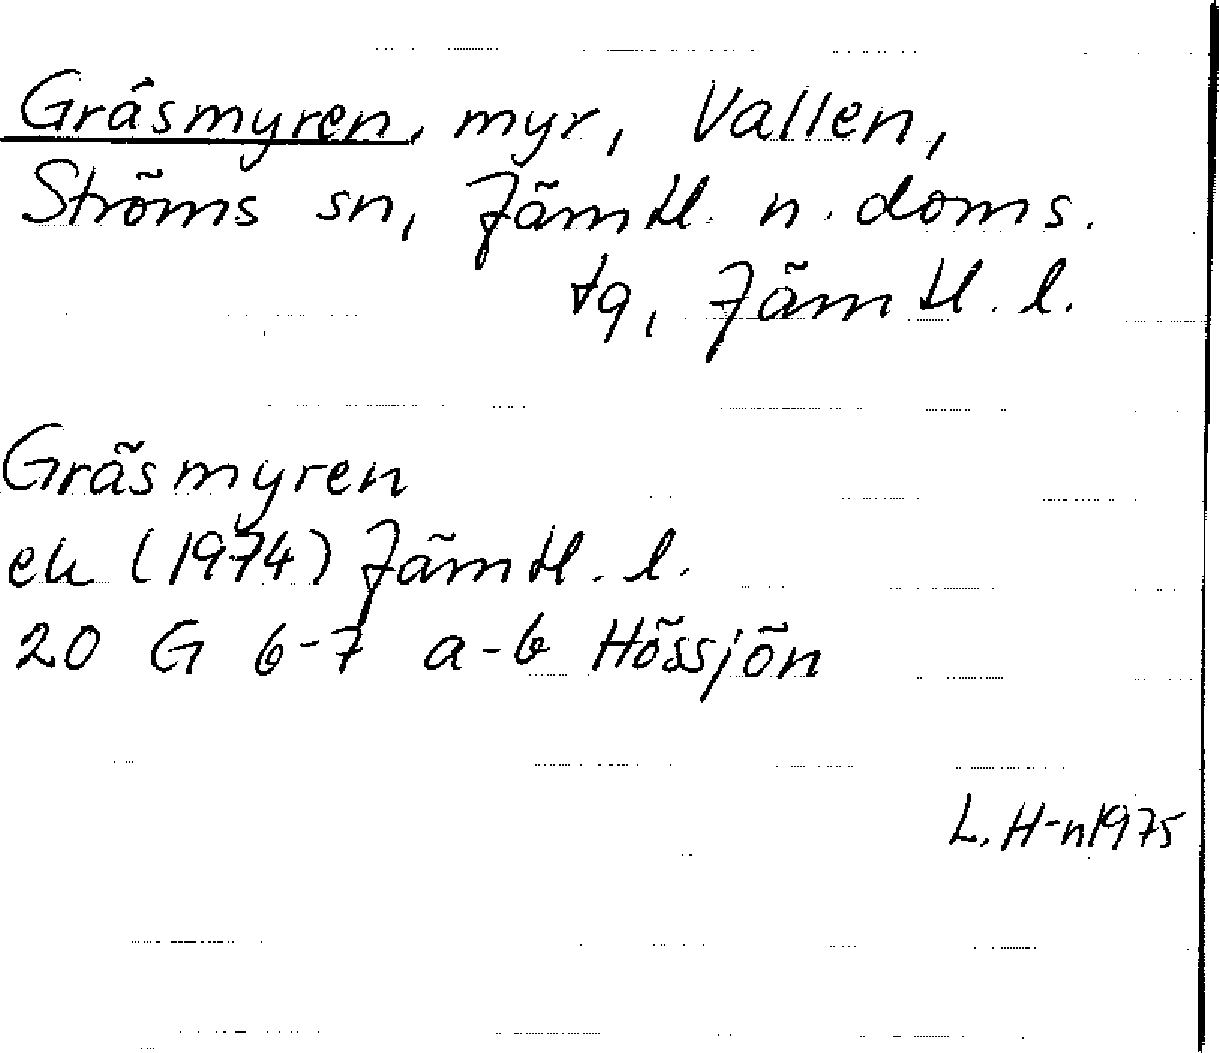 Gräsmyren, myr, Vallen,
Ströms sn, Jämtl. n. doms.
tg, Jämtl. l.
Gräsmyren
ek (1974) Jämtl. l.
20 G 6-7 a-b Hössjön
L. H-n 1975